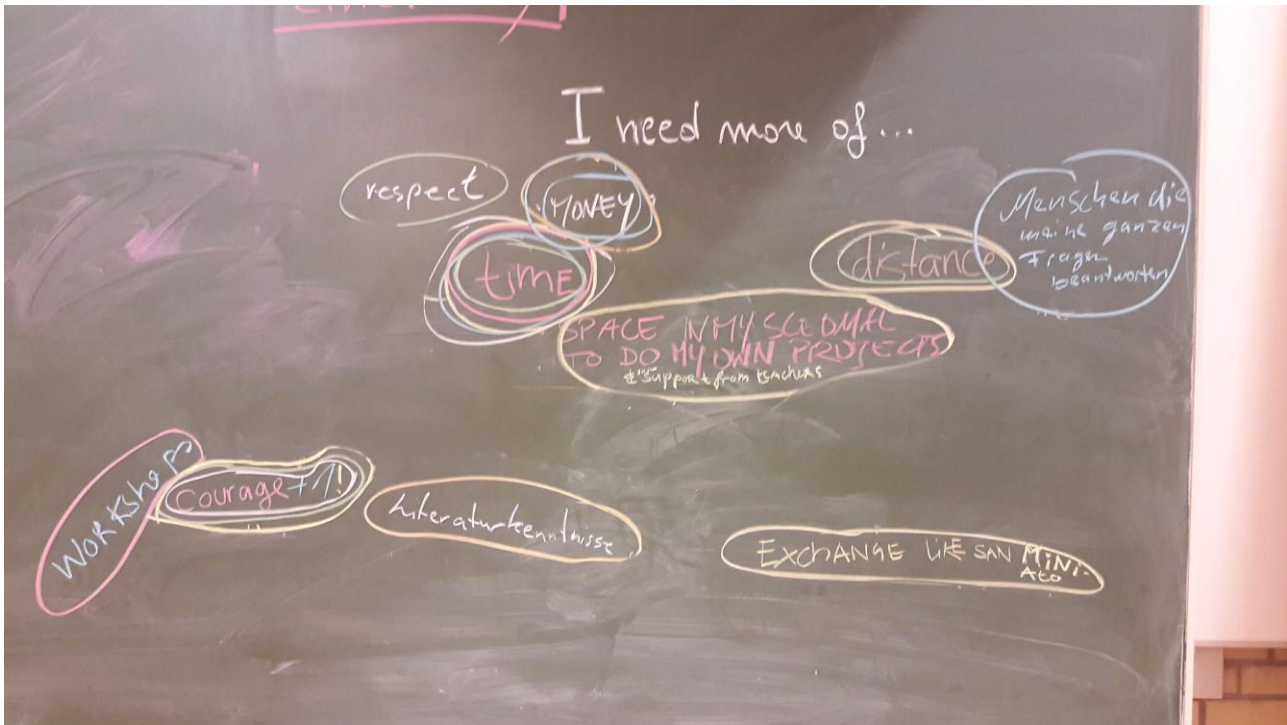 I need more of...
respect
MONEY
time
distance
Menschen die
meine ganzen
Fragen
beantworten
SPACE IN MY SCEDUAL
TO DO MY OWN PROJECTS
support from teachers
Workshops
courage +1!
Literaturkenntnisse
EXCHANGE LIKE SAN MINI-
ATO